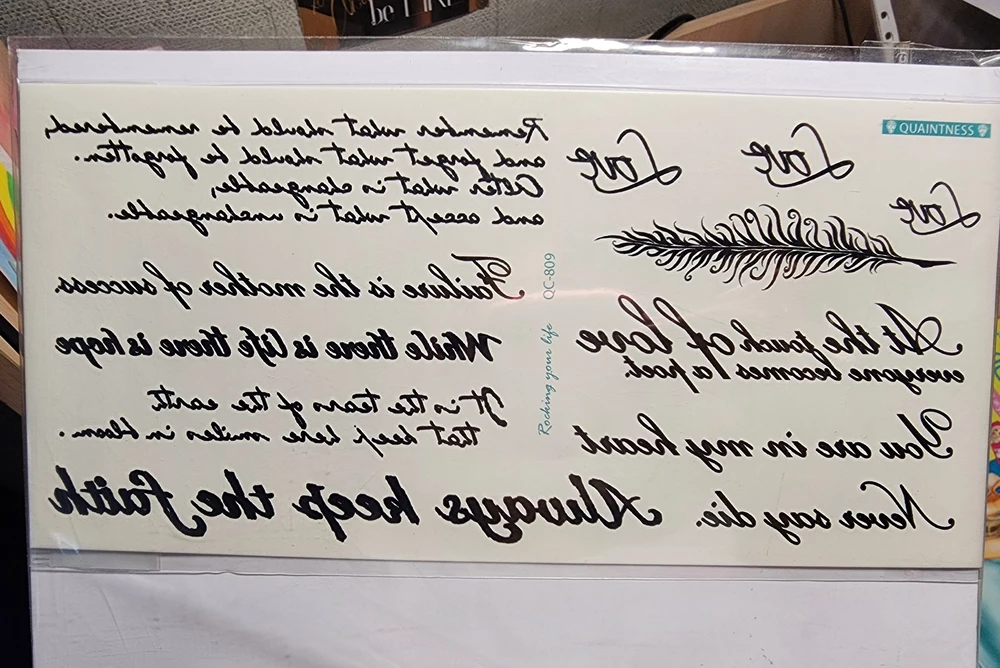 be
QUAINTNESS
Love
Love
Love
Remember what should be remembered,
and forget what should be forgotten.
Alter what is changeable,
and accept what is unchangeable.
Failure is the mother of success.
While there is life there is hope
It is the tears of the earth
that keep here smiles in bloom.
Always keep the faith
Rocking your life QC-809
At the touch of love
everyone becomes a poet.
You are in my heart
Never say die.